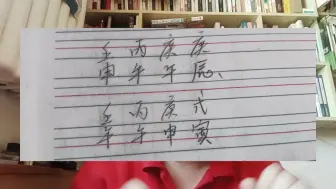 壬 丙 庚 庚
申 午 午 辰、
壬 丙 庚 戊
午 午 申 寅